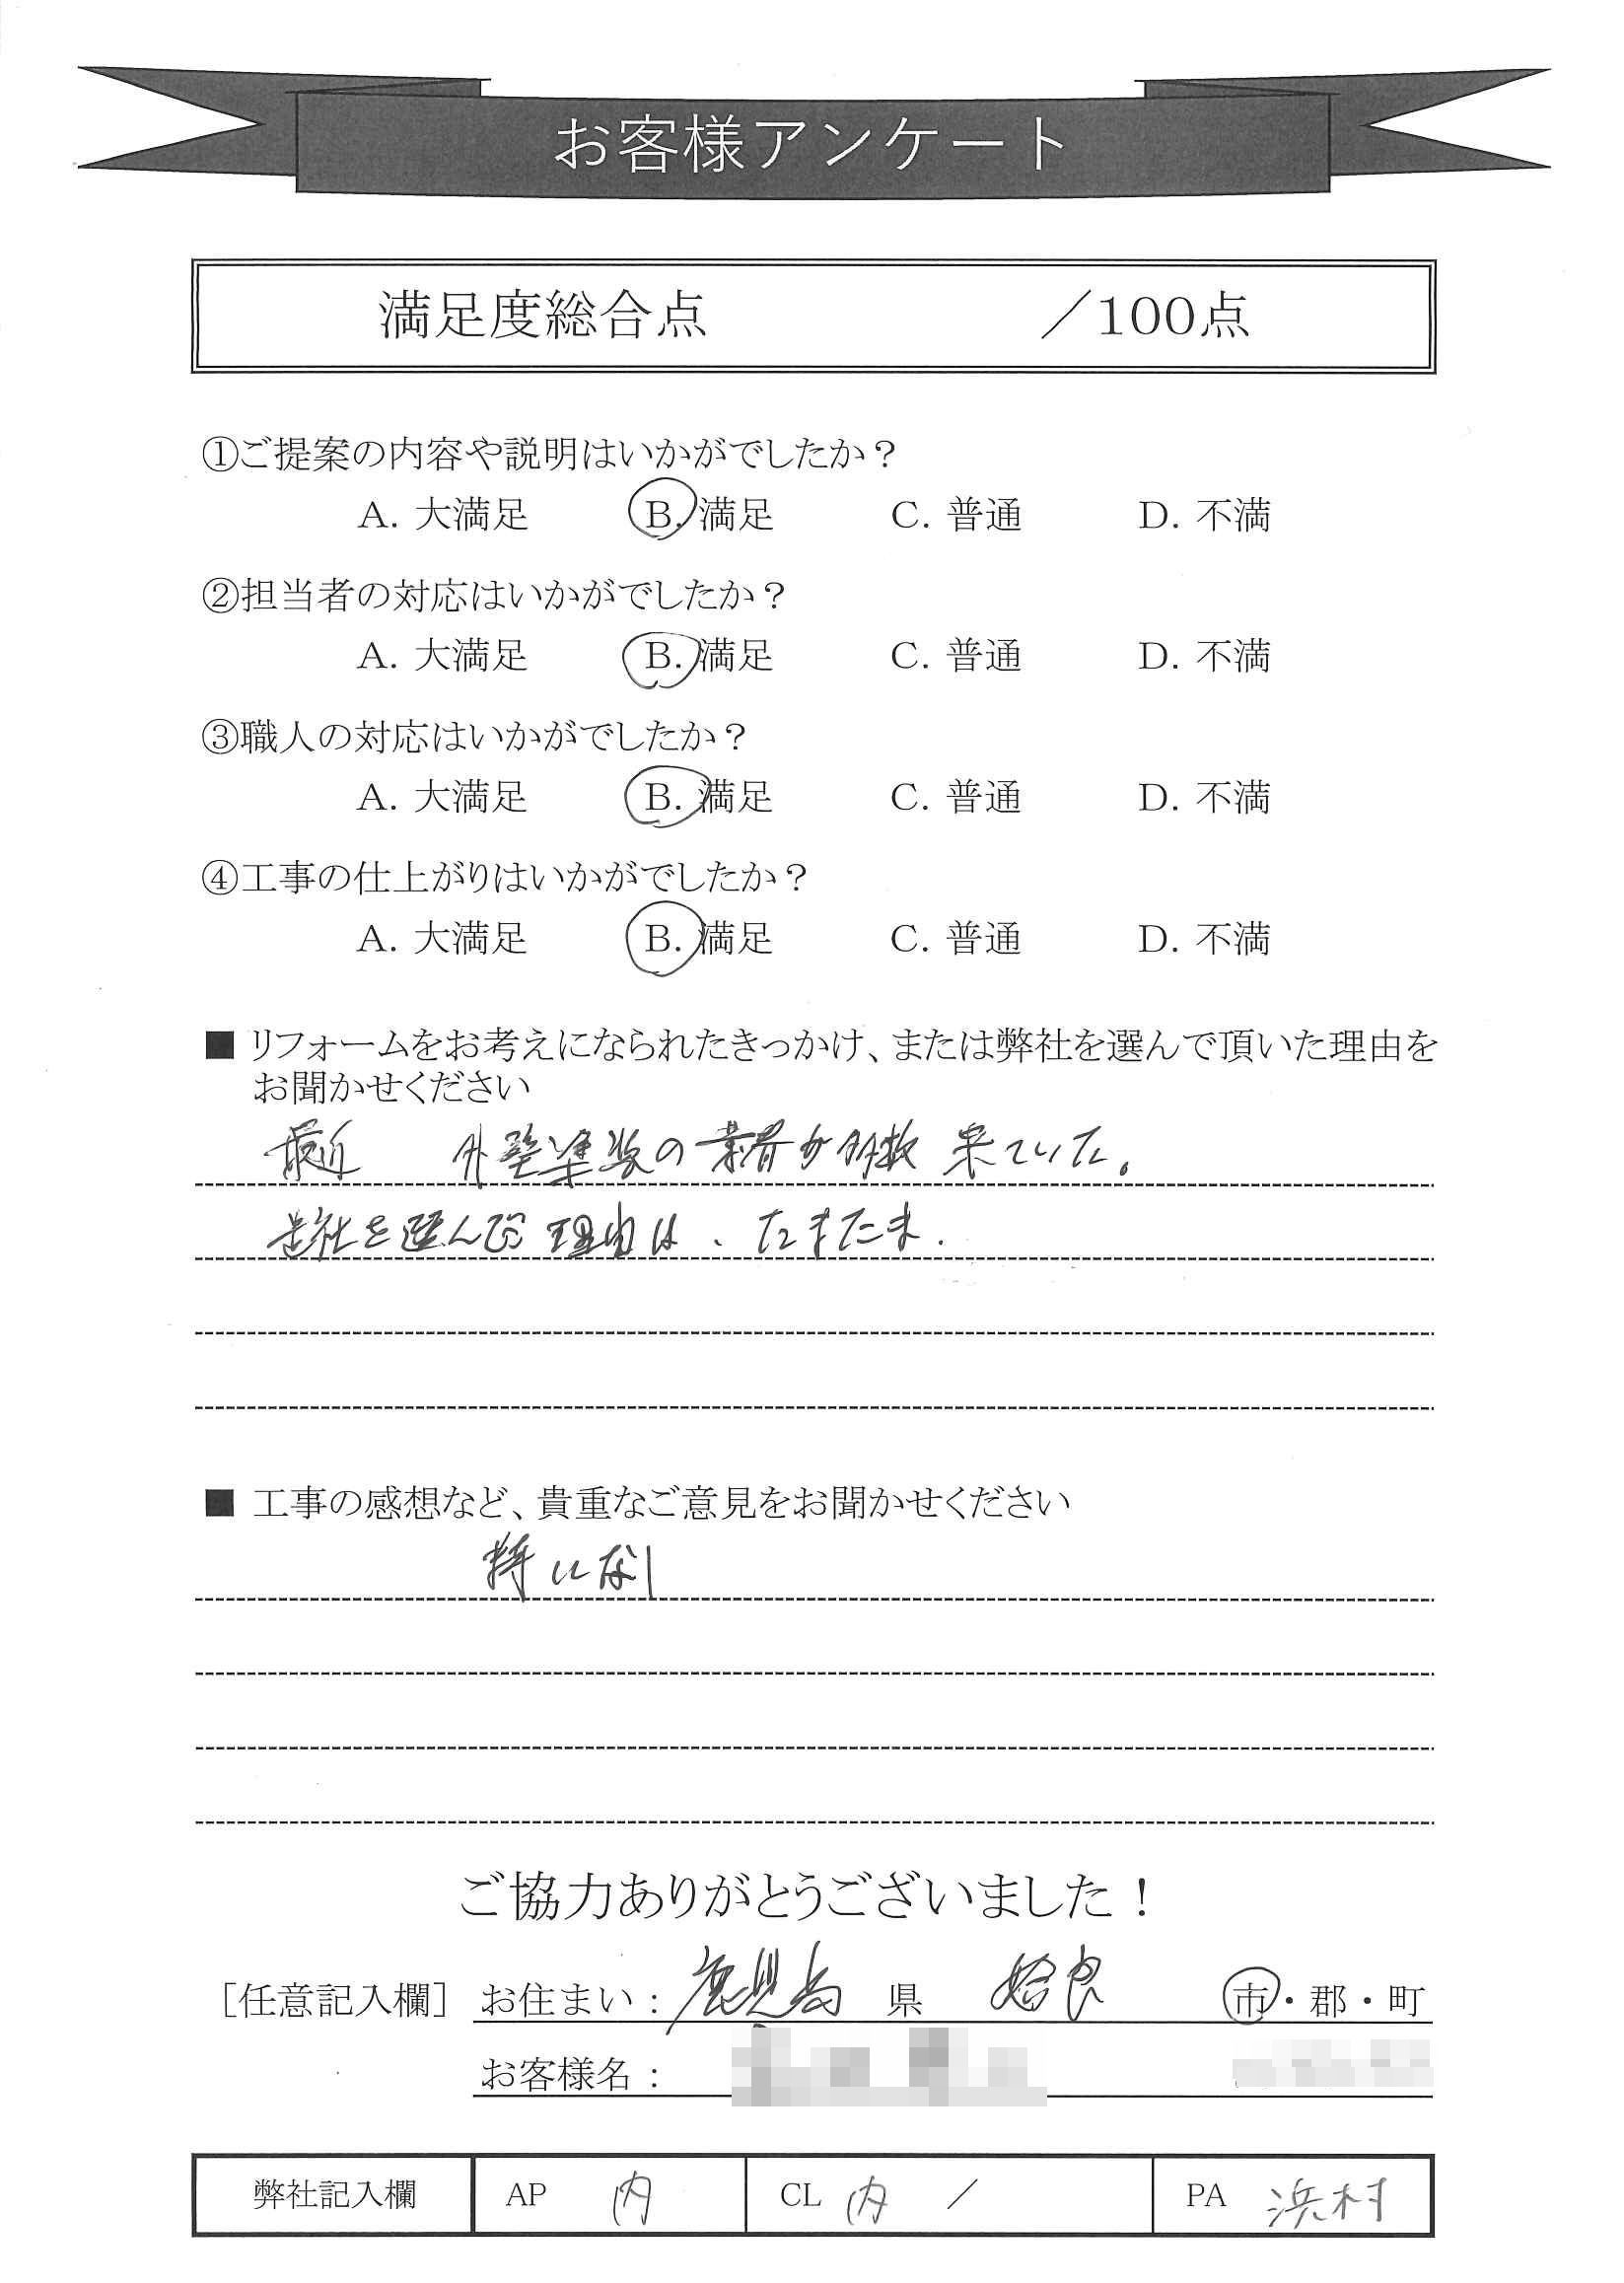 お客様アンケート
満足度総合点 ／100点
①ご提案の内容や説明はいかがでしたか？
A. 大満足 B. 満足 C. 普通 D. 不満
②担当者の対応はいかがでしたか？
A. 大満足 B. 満足 C. 普通 D. 不満
③職人の対応はいかがでしたか？
A. 大満足 B. 満足 C. 普通 D. 不満
④工事の仕上がりはいかがでしたか？
A. 大満足 B. 満足 C. 普通 D. 不満
■ リフォームをお考えになられたきっかけ、または弊社を選んで頂いた理由を
お聞かせください
最近 外壁塗装の業者が多数来ていた。
貴社を選んだ理由は、たまたま.
■ 工事の感想など、貴重なご意見をお聞かせください
特になし
ご協力ありがとうございました！
［任意記入欄］ お住まい： 鹿児島 県 姶良 市・郡・町
お客様名：
弊社記入欄 AP 内 CL 内 ／ PA 浜村